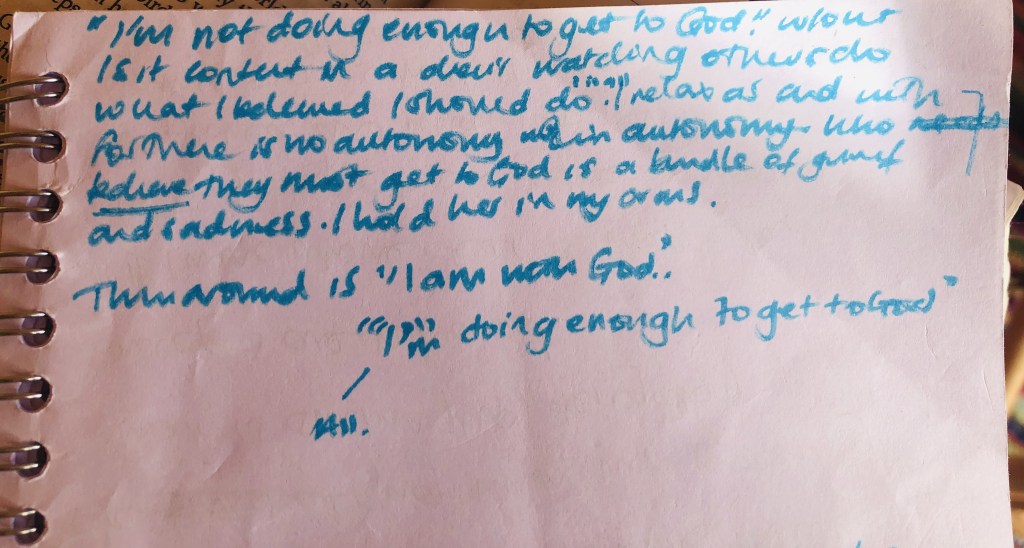 "I'm not doing enough to get to God." w/out
is it content in a chair watching others do
what I believed I should do. "I" relax as and with
for there is no autonomy in autonomy. who
believe they must get to God is a bundle of grief
and sadness. I hold her in my arms.
Turnaround is "I am with God."
""I"m doing enough to get to God"
All.